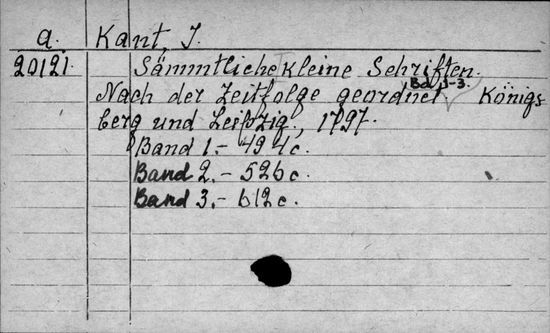 a. Kant, I.
20121. Sämmtliche kleine Schriften.
Bd. 1-3.
Nach der Zeitfolge geordnet. Königs
berg und Leipzig, 1797.
Band 1.- 494 c.
Band 2.- 526 c.
Band 3.- 612 c.